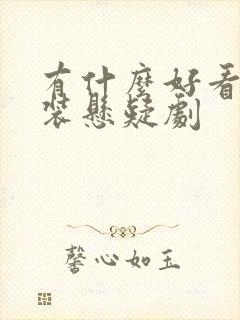 有什麼好看
裝懸疑劇
馨心如玉